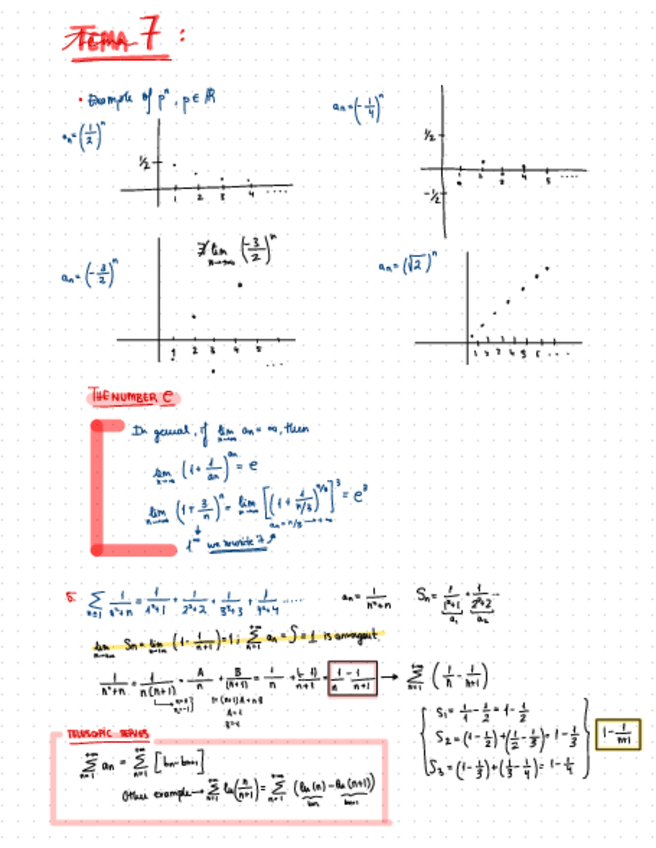 TEMA 7 :
• Example of pⁿ, p ∈ ℝ
aₙ = (1/2)ⁿ
1/2
1 2 3 4 ....
aₙ = (-1/4)ⁿ
1/2
-1/2
5 ....
aₙ = (-3/2)ⁿ
∄ lim n→∞ (-3/2)ⁿ
1 2 3 4 5 ....
aₙ = (√2)ⁿ
1 2 3 4 5 6 ....
THE NUMBER e
In general, if lim n→∞ aₙ = ∞, then
lim n→∞ (1 + 1/aₙ)^aₙ = e
lim n→∞ (1 + 3/n)ⁿ = lim n→∞ [(1 + 1/(n/3))^(n/3)]³ = e³
aₙ = n/3 → +∞
1^∞ we rewrite it
5. Σ n≥1 1/(n²+n) = 1/(1²+1) + 1/(2²+2) + 1/(3²+3) + 1/(4²+4) ..... aₙ = 1/(n²+n) Sₙ = 1/(1²+1) + 1/(2²+2) ...
a₁ a₂
lim n→∞ Sₙ = lim n→∞ (1 - 1/(n+1)) = 1 ; Σ n=1 +∞ aₙ = S = 1 is convergent.
1/(n²+n) = 1/(n(n+1)) = A/n + B/(n+1) = 1/n + (-1)/(n+1) = 1/n - 1/(n+1) → Σ n=1 +∞ (1/n - 1/(n+1))
1 = (n+1)A + nB
A = 1
B = -1
S₁ = 1/1 - 1/2 = 1 - 1/2
S₂ = (1 - 1/2) + (1/2 - 1/3) = 1 - 1/3
S₃ = (1 - 1/3) + (1/3 - 1/4) = 1 - 1/4
1 - 1/(n+1)
TELESOPIC SERIES
Σ n=1 +∞ aₙ = Σ n=1 +∞ [bₙ - bₙ₊₁]
Other example → Σ n=1 +∞ ln(n/(n+1)) = Σ n=1 +∞ (ln(n) - ln(n+1))
bₙ bₙ₊₁